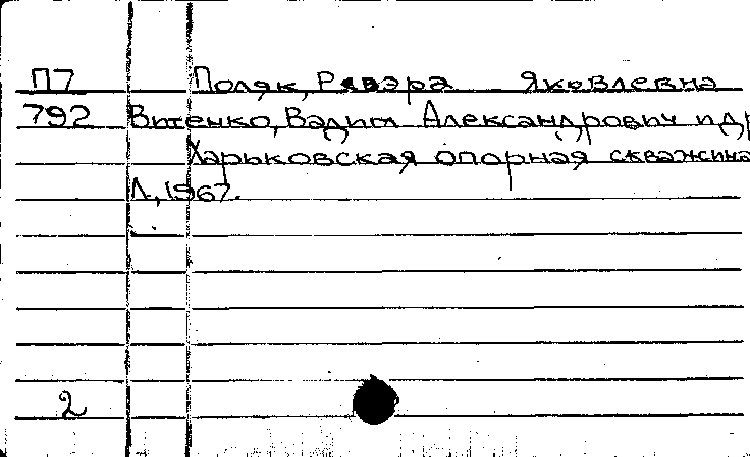 П7 Поляк, Рявэра Яковлевна
792 Витенко, Вадим Александрович и др
Харьковская опорная скважина
Л., 1967.
2